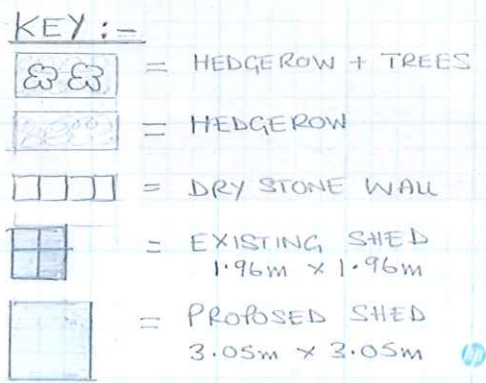 KEY :-
= HEDGEROW + TREES
= HEDGEROW
= DRY STONE WALL
= EXISTING SHED
1.96m × 1.96m
= PROPOSED SHED
3.05m × 3.05m
hp